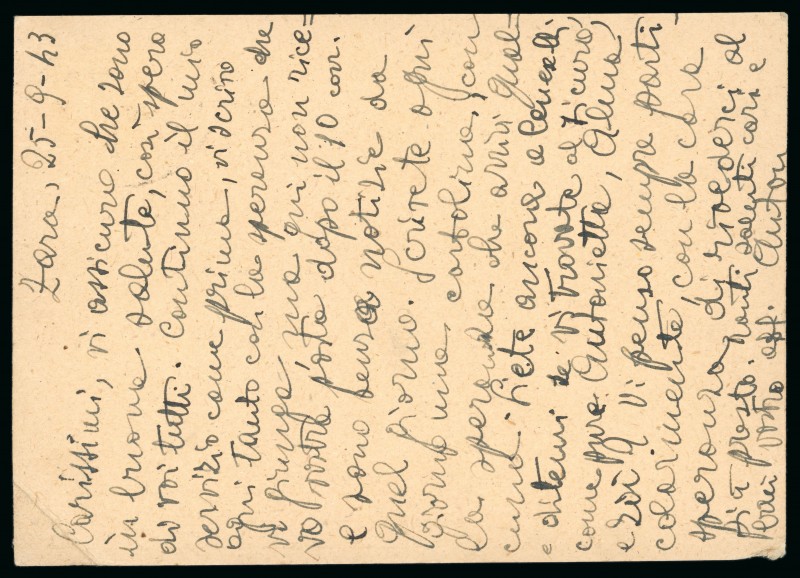 Zara, 25-9-43
Carissimi, vi assicuro che sono
in buona salute, così spero
di voi tutti. Continuo il mio
servizio come prima, vi scrivo
ogni tanto con la speranza che
vi giunga, ma qui non rice=
vo vostra posta dopo il 10 corr.
e sono senza notizie da
quel giorno. Scrivete ogni
giorno una cartolina, con
la speranza che arrivi qual=
cuna. Siete ancora a
e se vi trovate al sicuro,
come pure Antonietta, Alma,
e zii? Vi penso sempre parti-
colarmente, con la cara
speranza di rivederci al
più presto. Tanti saluti cari e
baci vostro aff.